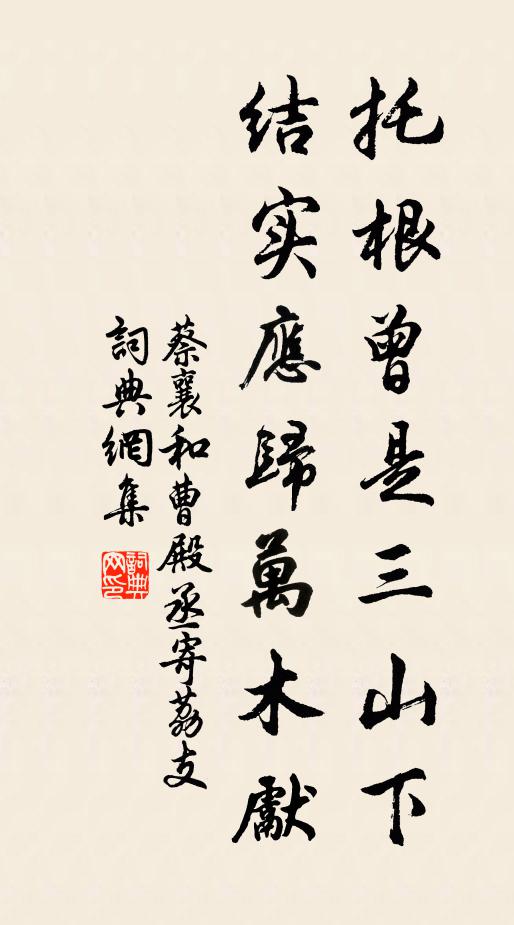 托根曾是三山下
结实應歸萬木獻
蔡襄和曹殿丞寄荔支
詞典網集
詞典网印